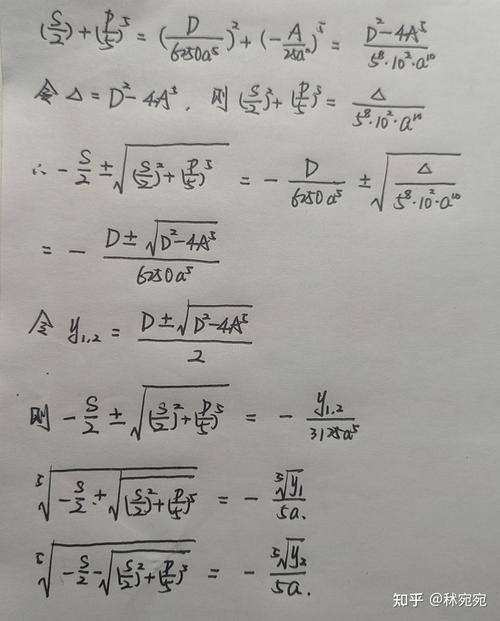 (S/2)²+(P/5)⁵ = (D/6250a⁵)²+(-A/25a²)⁵ = (D²-4A⁵)/(5⁸·10²·a¹⁰)
令 Δ = D²-4A⁵, 则 (S/2)²+(P/5)⁵ = Δ/(5⁸·10²·a¹⁰)
∴ -S/2 ± √((S/2)²+(P/5)⁵) = -D/(6250a⁵) ± √(Δ/(5⁸·10²·a¹⁰))
= -(D±√(D²-4A⁵))/(6250a⁵)
令 y₁,₂ = (D±√(D²-4A⁵))/2
则 -S/2 ± √((S/2)²+(P/5)⁵) = -y₁,₂/(3125a⁵)
⁵√(-S/2+√((S/2)²+(P/5)⁵)) = -⁵√y₁/(5a.)
⁵√(-S/2-√((S/2)²+(P/5)⁵)) = -⁵√y₂/(5a.)
知乎 @秝宛宛